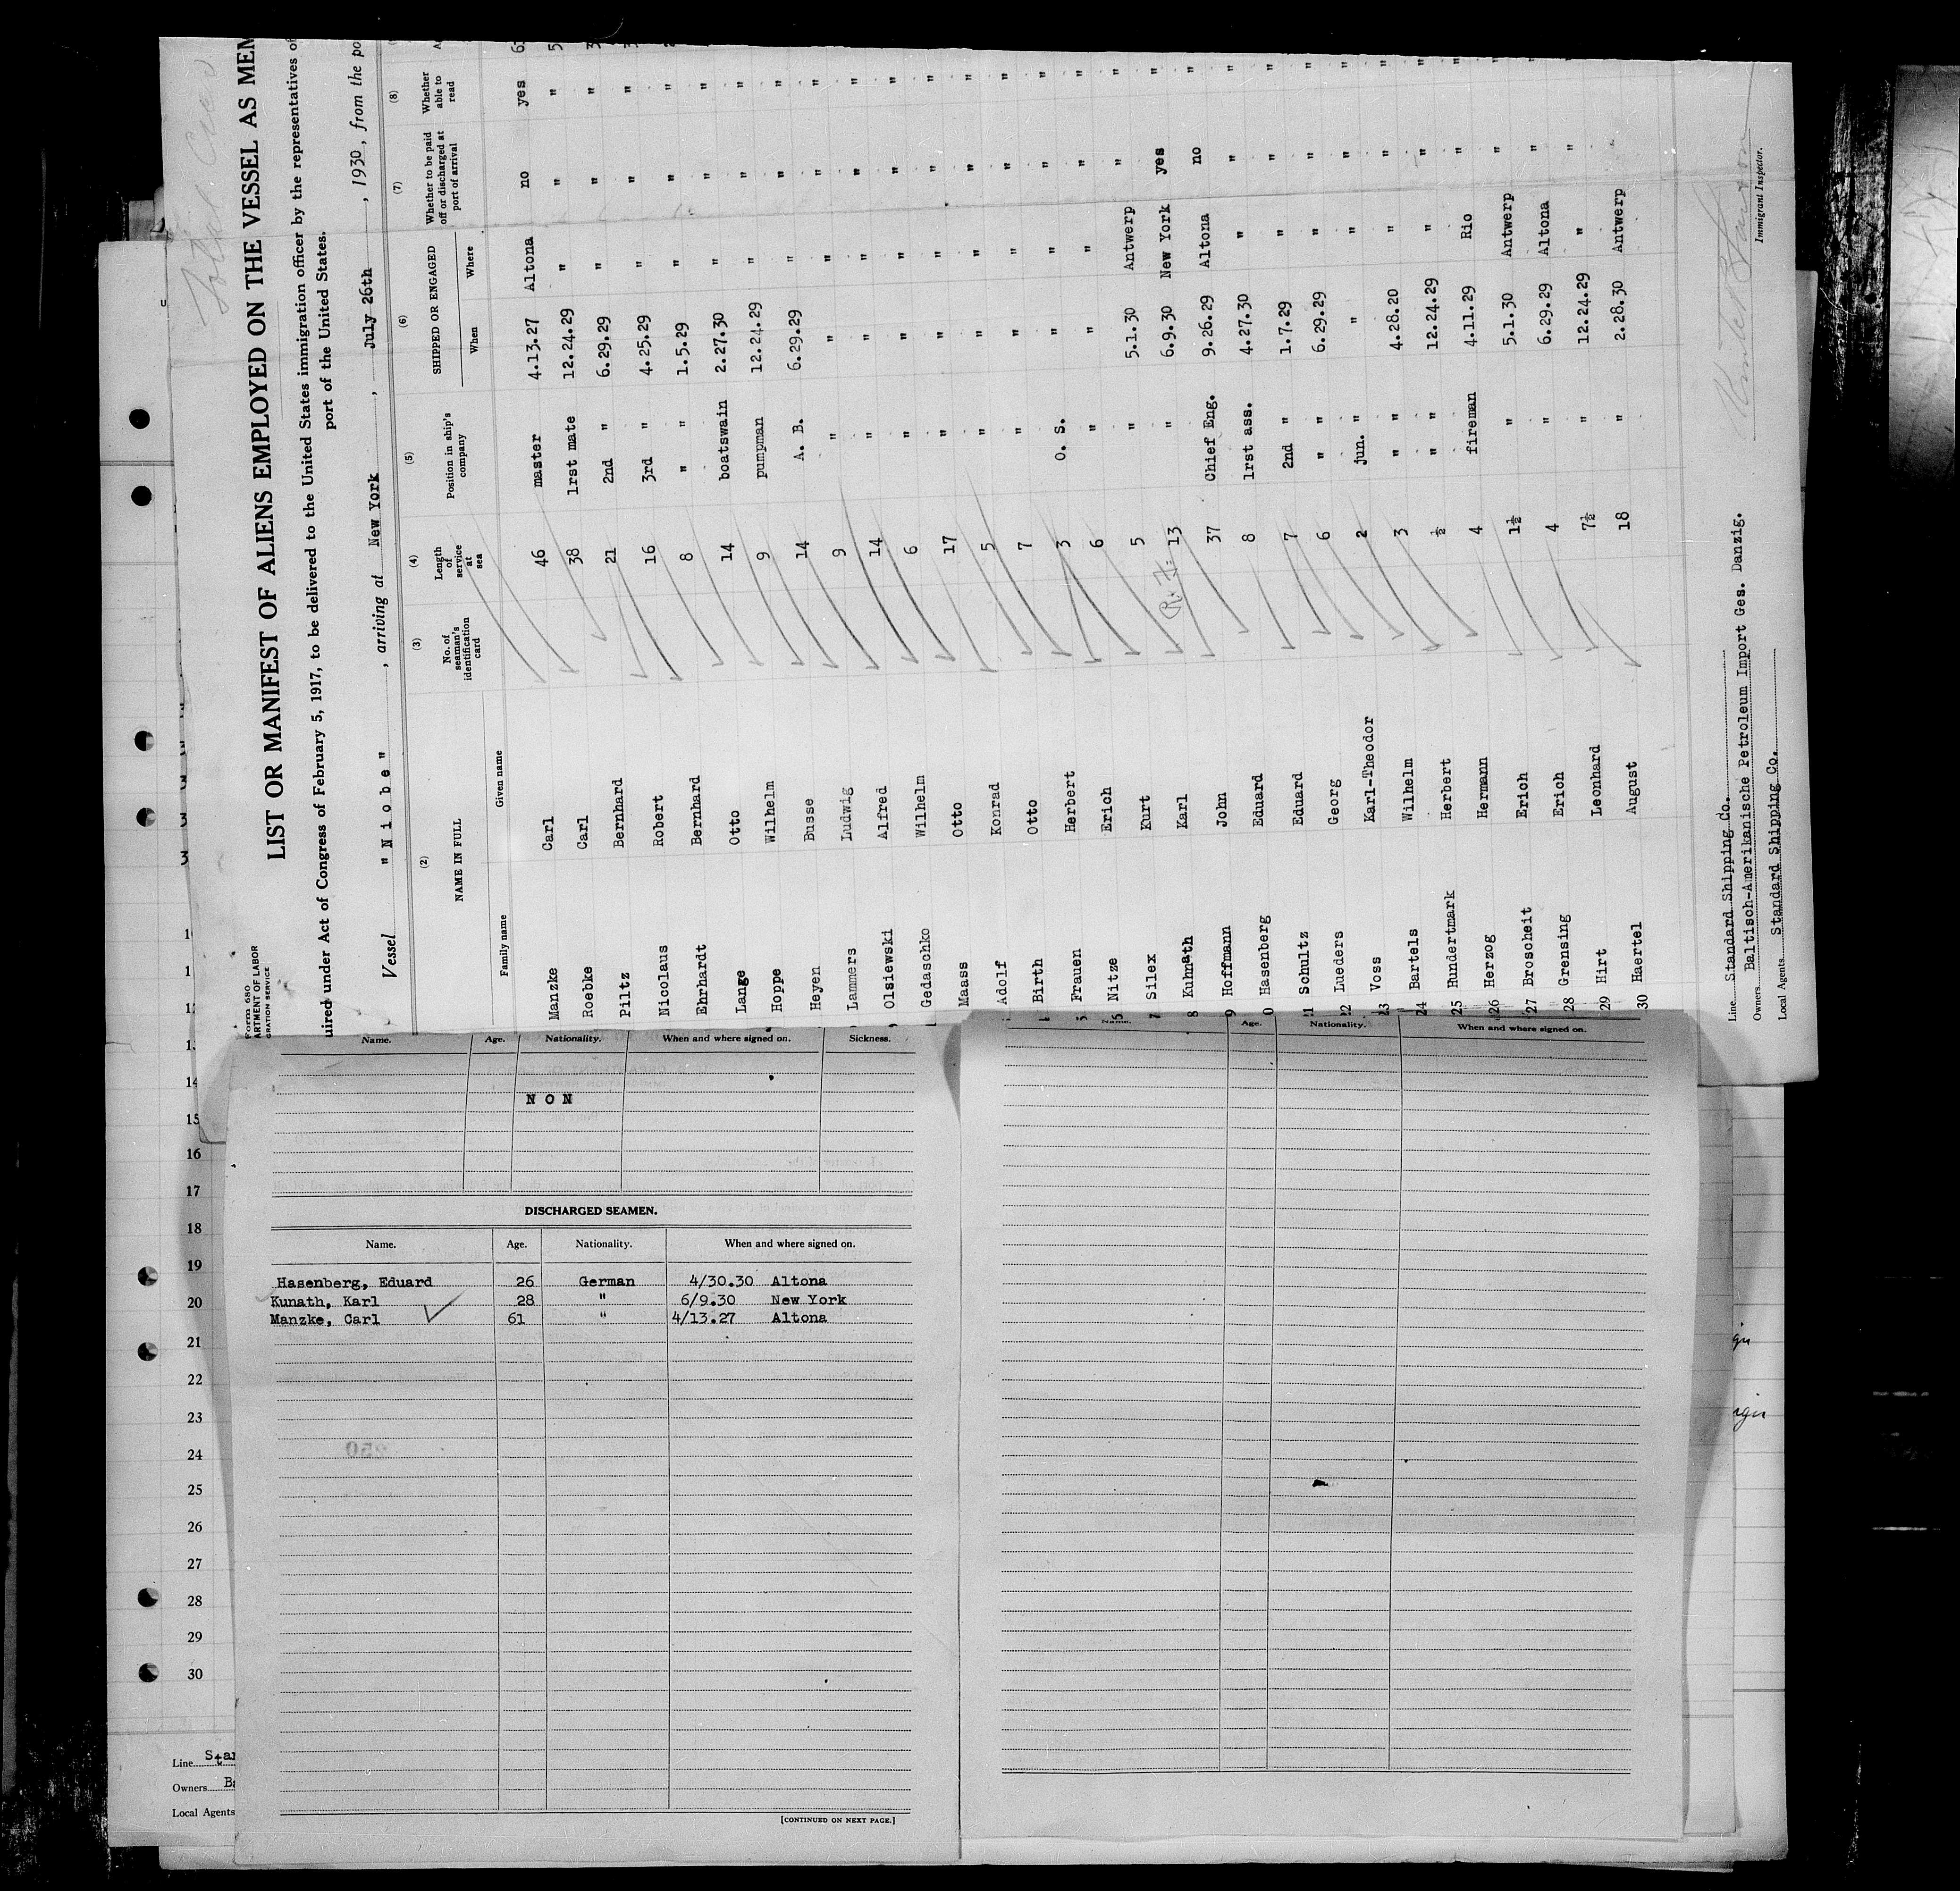 Form 680
ARTMENT OF LABOR
GRATION SERVICE
LIST OR MANIFEST OF ALIENS EMPLOYED ON THE VESSEL AS MEM
uired under Act of Congress of February 5, 1917, to be delivered to the United States immigration officer by the representatives of
port of the United States.
Vessel "Niobe", arriving at New York, July 26th, 1930, from the po
(2) (3) (4) (5) (6) (7) (8)
NAME IN FULL No. of seaman's identification card Length of service at sea Position in ship's company SHIPPED OR ENGAGED Whether to be paid off or discharged at port of arrival Whether able to read
Family name Given name When Where
Manzke Carl 46 master 4.13.27 Altona no yes
Roebke Carl 38 1rst mate 12.24.29 " " "
Piltz Bernhard 21 2nd " 6.29.29 " " "
Nicolaus Robert 16 3rd " 4.25.29 " " "
Ehrhardt Bernhard 8 " " 1.5.29 " " "
Lange Otto 14 boatswain 2.27.30 " " "
Hoppe Wilhelm 9 pumpman 12.24.29 " " "
Heyen Busse 14 A. B. 6.29.29 " " "
Lammers Ludwig 9 " " " " "
Olsiewski Alfred 14 " " " " "
Gedaschko Wilhelm 6 " " " " "
Maass Otto 17 " " " " "
Adolf Konrad 5 " " " " "
Birth Otto 7 " " " " "
Frauen Herbert 3 O. S. " " " "
Nitze Erich 6 " " " " "
Silex Kurt 5 " 5.1.30 Antwerp " "
Kuhnath Karl 13 " 6.9.30 New York yes "
Hoffmann John 37 Chief Eng. 9.26.29 Altona no "
Hasenberg Eduard 8 1rst ass. 4.27.30 " " "
Schultz Eduard 7 2nd " 1.7.29 " " "
22 Lueders Georg 6 " " 6.29.29 " " "
23 Voss Karl-Theodor 2 jun. " " " " "
24 Bartels Wilhelm 3 " " 4.28.20 " " "
25 Hundertmark Herbert ½ " " 12.24.29 " " "
26 Herzog Hermann 4 fireman 4.11.29 Rio " "
27 Broscheit Erich 1½ " 5.1.30 Antwerp "
28 Grensing Erich 4 " 6.29.29 Altona "
29 Hirt Leonhard 7½ " 12.24.29 " "
30 Haertel August 18 " 2.28.30 Antwerp
Line Standard Shipping Co.
Owners Baltisch-Amerikanische Petroleum Import Ges. Danzig.
Local Agents Standard Shipping Co.
Immigrant Inspector.
Name. Age. Nationality. When and where signed on. Sickness.
NON
DISCHARGED SEAMEN.
Name. Age. Nationality. When and where signed on.
Hasenberg, Eduard 26 German 4/30.30 Altona
Kunath, Karl 28 " 6/9.30 New York
Manzke, Carl 61 " 4/13.27 Altona
[CONTINUED ON NEXT PAGE.]
Name. Age. Nationality. When and where signed on.
12
13
14
15
16
17
18
19
20
21
22
23
24
25
26
27
28
29
30
Line Stan
Owners Ba
Local Agents